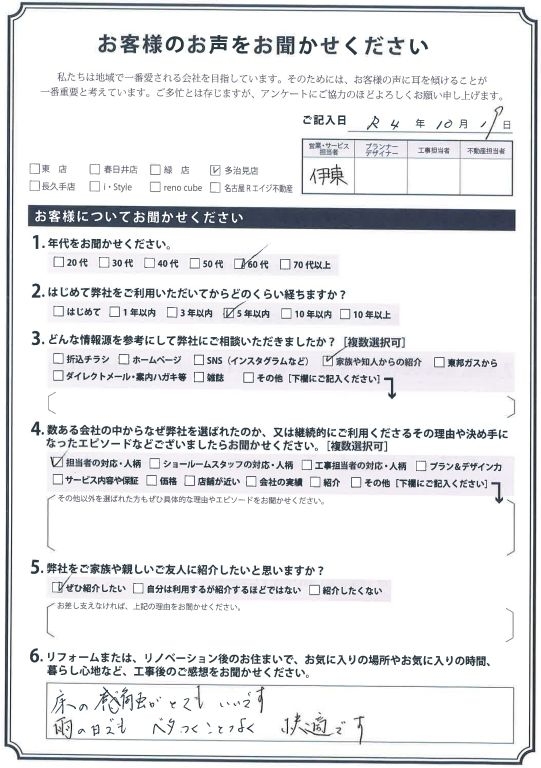 お客様のお声をお聞かせください
私たちは地域で一番愛される会社を目指しています。そのためには、お客様の声に耳を傾けることが
一番重要と考えています。ご多忙とは存じますが、アンケートにご協力のほどよろしくお願い申し上げます。
ご記入日 R4 年 10 月 19 日
営業・サービス担当者 プランナーデザイナー 工事担当者 不動産担当者
伊東
東 店 春日井店 緑 店 多治見店
長久手店 i・Style reno cube 名古屋Rエイジ不動産
お客様についてお聞かせください
1. 年代をお聞かせください。
20代 30代 40代 50代 60代 70代以上
2. はじめて弊社をご利用いただいてからどのくらい経ちますか？
はじめて 1年以内 3年以内 5年以内 10年以内 10年以上
3. どんな情報源を参考にして弊社にご相談いただきましたか？［複数選択可］
折込チラシ ホームページ SNS（インスタグラムなど） 家族や知人からの紹介 東邦ガスから
ダイレクトメール・案内ハガキ等 雑誌 その他［下欄にご記入ください］
4. 数ある会社の中からなぜ弊社を選ばれたのか、又は継続的にご利用くださるその理由や決め手に
なったエピソードなどございましたらお聞かせください。［複数選択可］
担当者の対応・人柄 ショールームスタッフの対応・人柄 工事担当者の対応・人柄 プラン＆デザイン力
サービス内容や保証 価格 店舗が近い 会社の実績 紹介 その他［下欄にご記入ください］
その他以外を選ばれた方もぜひ具体的な理由やエピソードをお聞かせください。
5. 弊社をご家族や親しいご友人に紹介したいと思いますか？
ぜひ紹介したい 自分は利用するが紹介するほどではない 紹介したくない
お差し支えなければ、上記の理由をお聞かせください。
6. リフォームまたは、リノベーション後のお住まいで、お気に入りの場所やお気に入りの時間、
暮らし心地など、工事後のご感想をお聞かせください。
床の感触がとてもいいです
雨の日でも ベタつくことなく 快適です